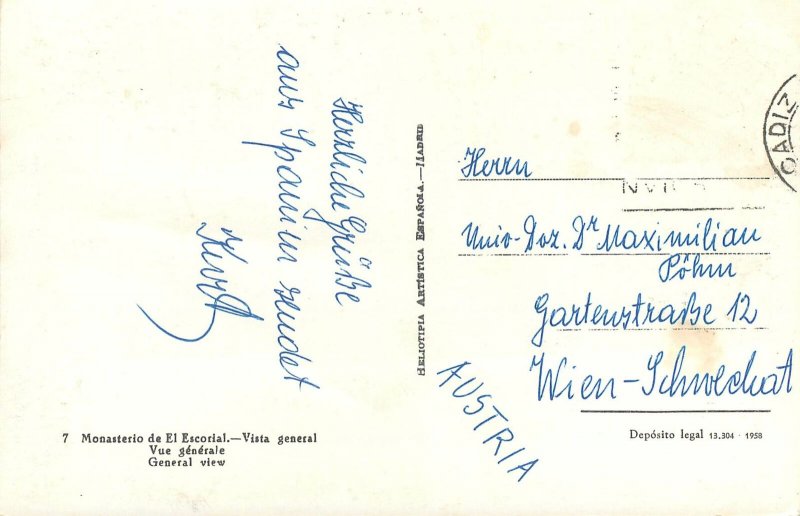 Herzliche Grüße
aus Spanien sendet
Kurt
7 Monasterio de El Escorial.—Vista general
Vue générale
General view
HELIOTIPIA ARTÍSTICA ESPAÑOLA.—MADRID
CADIZ
Herrn
Univ-Doz. Dr Maximilian
Pöhm
Gartenstraße 12
Wien-Schwechat
AUSTRIA
Depósito legal 13.304 - 1958